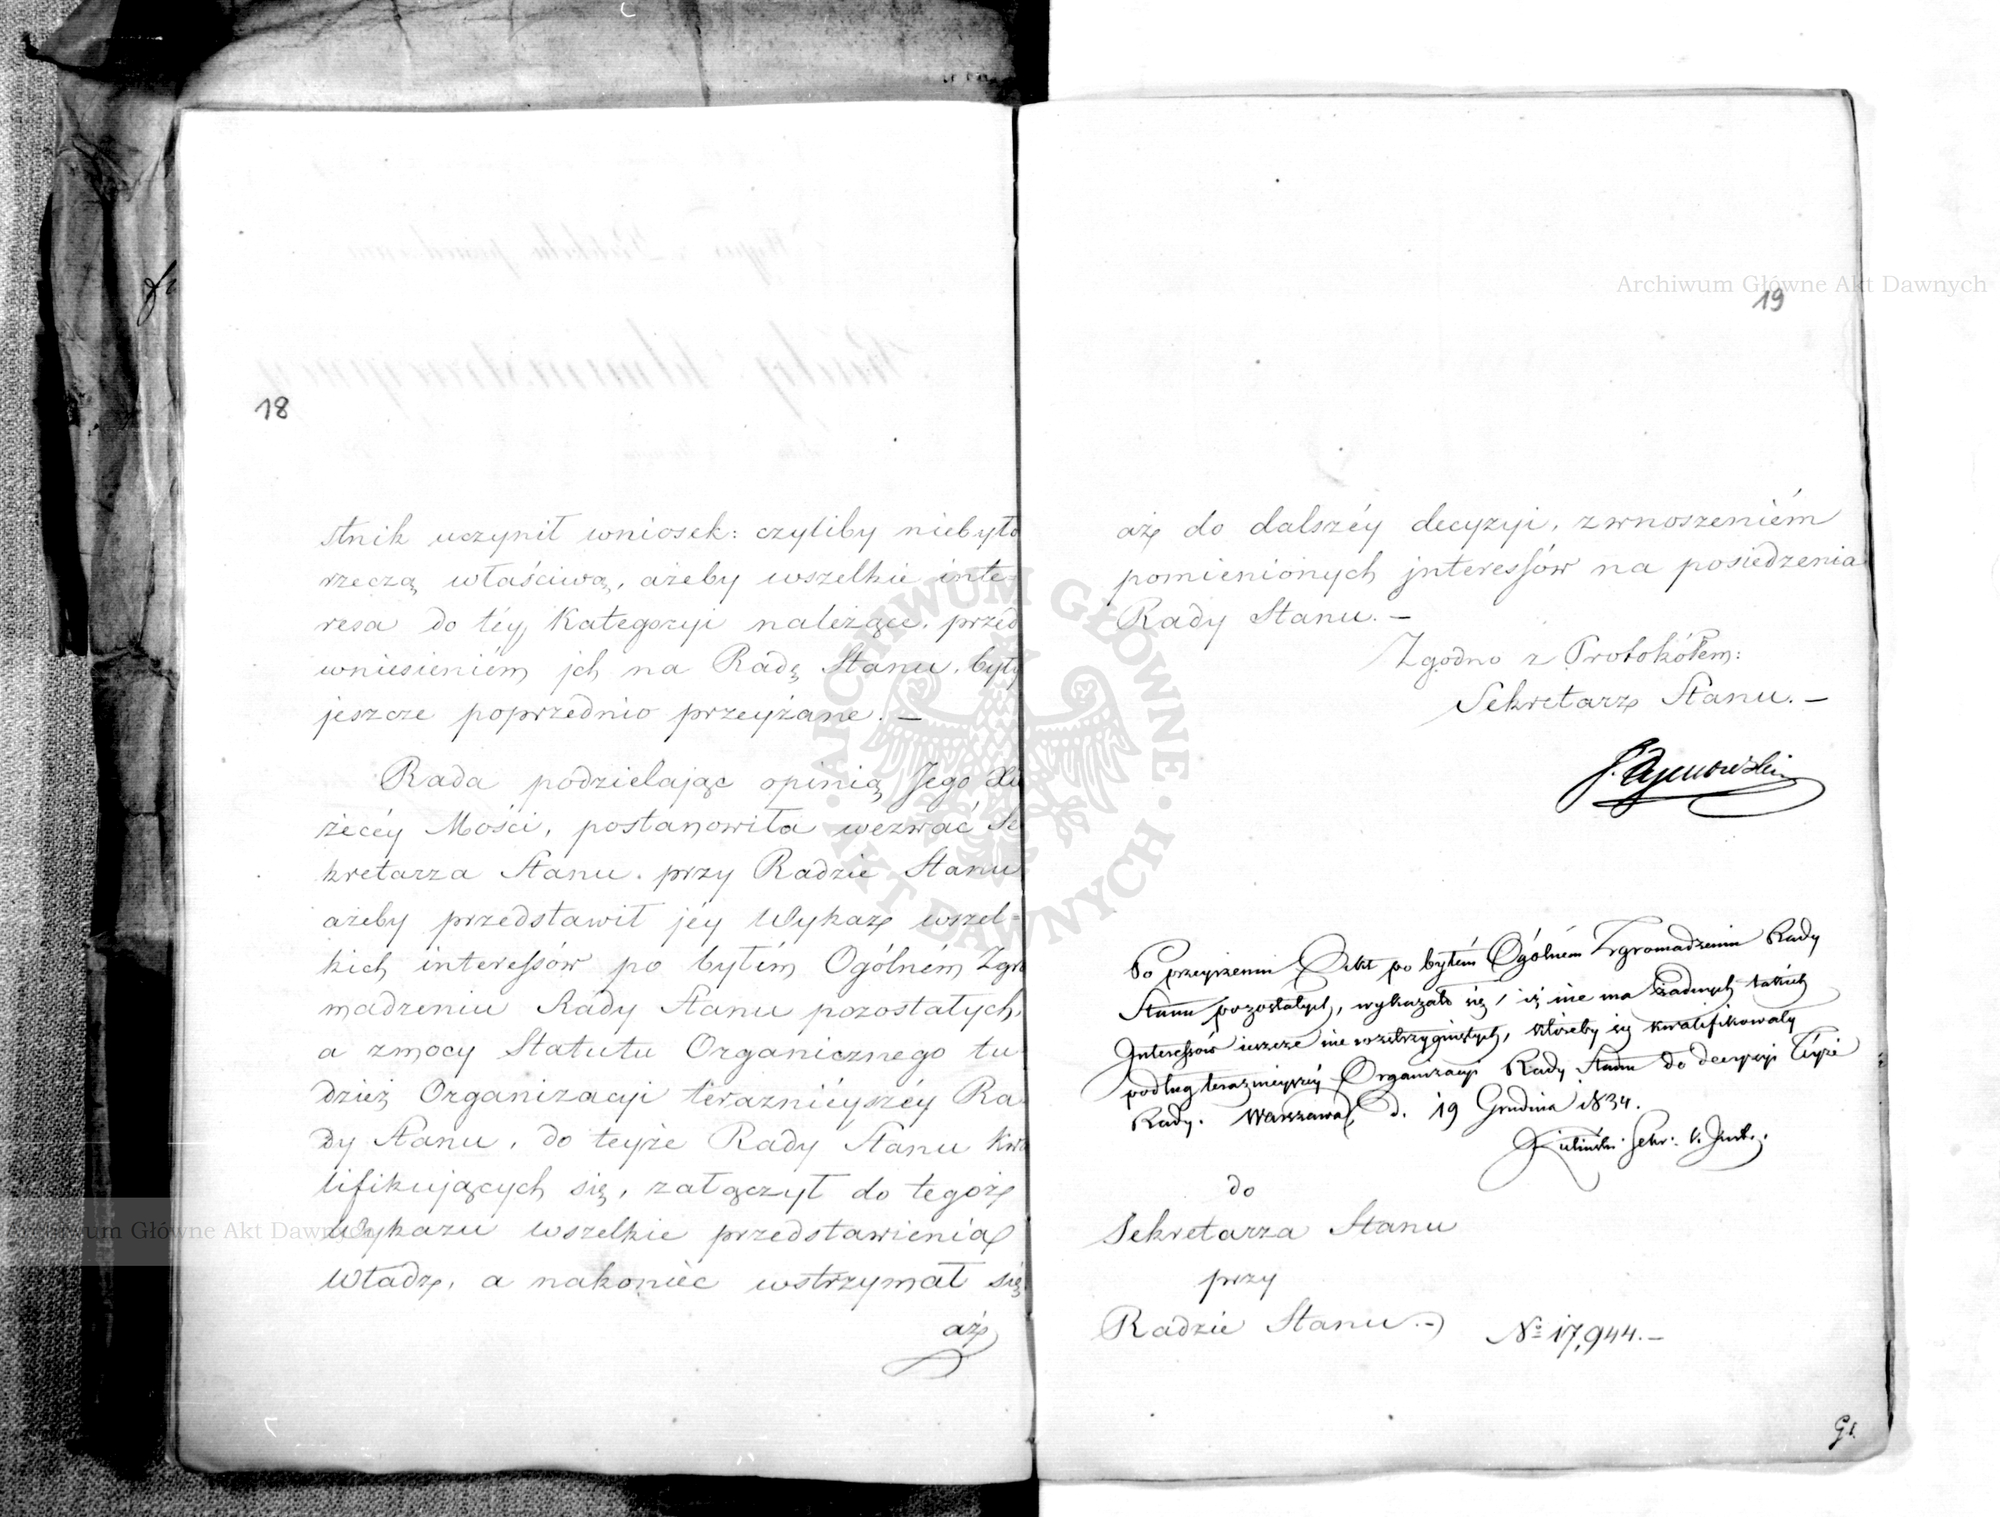 18
stnik uczynił wniosek: czyliby niebyło
rzeczą właściwą, ażeby wszelkie inte-
resa do téy Kategoryi należące, przed
wniesieniém jch na Radę Stanu, były
jeszcze poprzednio przeyżane. —
Rada podzielając opinią Jego Xią
żecéy Mości, postanowiła wezwać Se
kretarza Stanu przy Radzie Stanu
ażeby przedstawił jéy Wykaz wszel-
kich interessów po byłém Ogólném Zgro
madzeniu Rady Stanu pozostałych,
a zmocy Statutu Organicznego tu
dzież Organizacyi teraznieyszéy Ra
dy Stanu, do teyże Rady Stanu kwa
lifikujących się, załączył do tegoż
Wykazu wszelkie przedstawienia
Władz, a nakoniec wstrzymał się
aż
19
aż do dalszéy decyzyi, zwnoszeniém
pomienionych jnteressów na posiedzenia
Rady Stanu. —
Zgodno z Protokółem:
Sekretarz Stanu. —
Po przeyrzeniu Akt po byłém Ogólném Zgromadzeniu Rady
Stanu pozostałych, wykazało się, iż nie ma żadnych takich
Interessów ieszcze nie rozstrzygniętych, któreby się kwalifikowały
podług teraznieyszéy Organizacyi Rady Stanu do decyzyi Téyże
Rady. Warszawa d. 19 Grudnia 1834.
do
Sekretarza Stanu
przy
Radzie Stanu. —
No 17,944. —
Archiwum Główne Akt Dawnych
Archiwum Główne Akt Dawnych
ARCHIWUM GŁÓWNE · AKT DAWNYCH ·